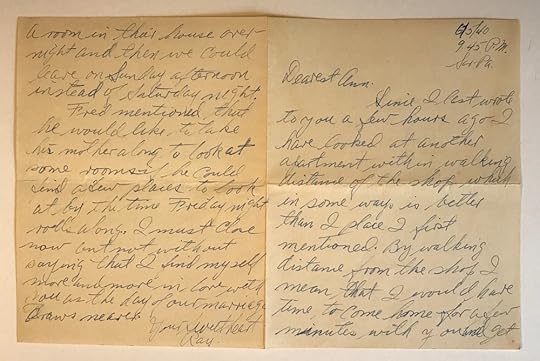 9:45 P.M.
Dearest Ann:
Since I last wrote
to you a few hours ago I
have looked at another
apartment within walking
distance of the shop which
in some ways is better
than I place I first
mentioned. By walking
distance from the shop I
mean that I would have
time to come home for a few
minutes with you and get
a room in their house over-
night and then we could
leave on Sunday afternoon
instead of Saturday night.
Fred mentioned that
he would like to take
his mother along to look at
some rooms if he could
find a few places to look
at by the time Friday night
rolls along. I must close
now but not without
saying that I find myself
more and more in love with
you as the day of our marriage
draws nearer.
Your Sweetheart
Ray.